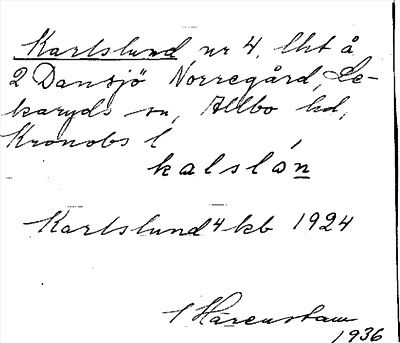 Karlslund nr 4, lht å
2 Dansjö Norregård, Le-
karyds sn, Allbo hd,
Kronobs l
kalslón
Karlslund 4 kb 1924
Harenstam
1936